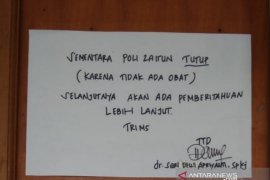 SEMENTARA POLI ZAITUN TUTUP
(KARENA TIDAK ADA OBAT)
SELANJUTNYA AKAN ADA PEMBERITAHUAN
LEBIH LANJUT.
TRIMS
TTD
dr. SARI DEWI APRIYANI, SpKJ
ANTARANEWS